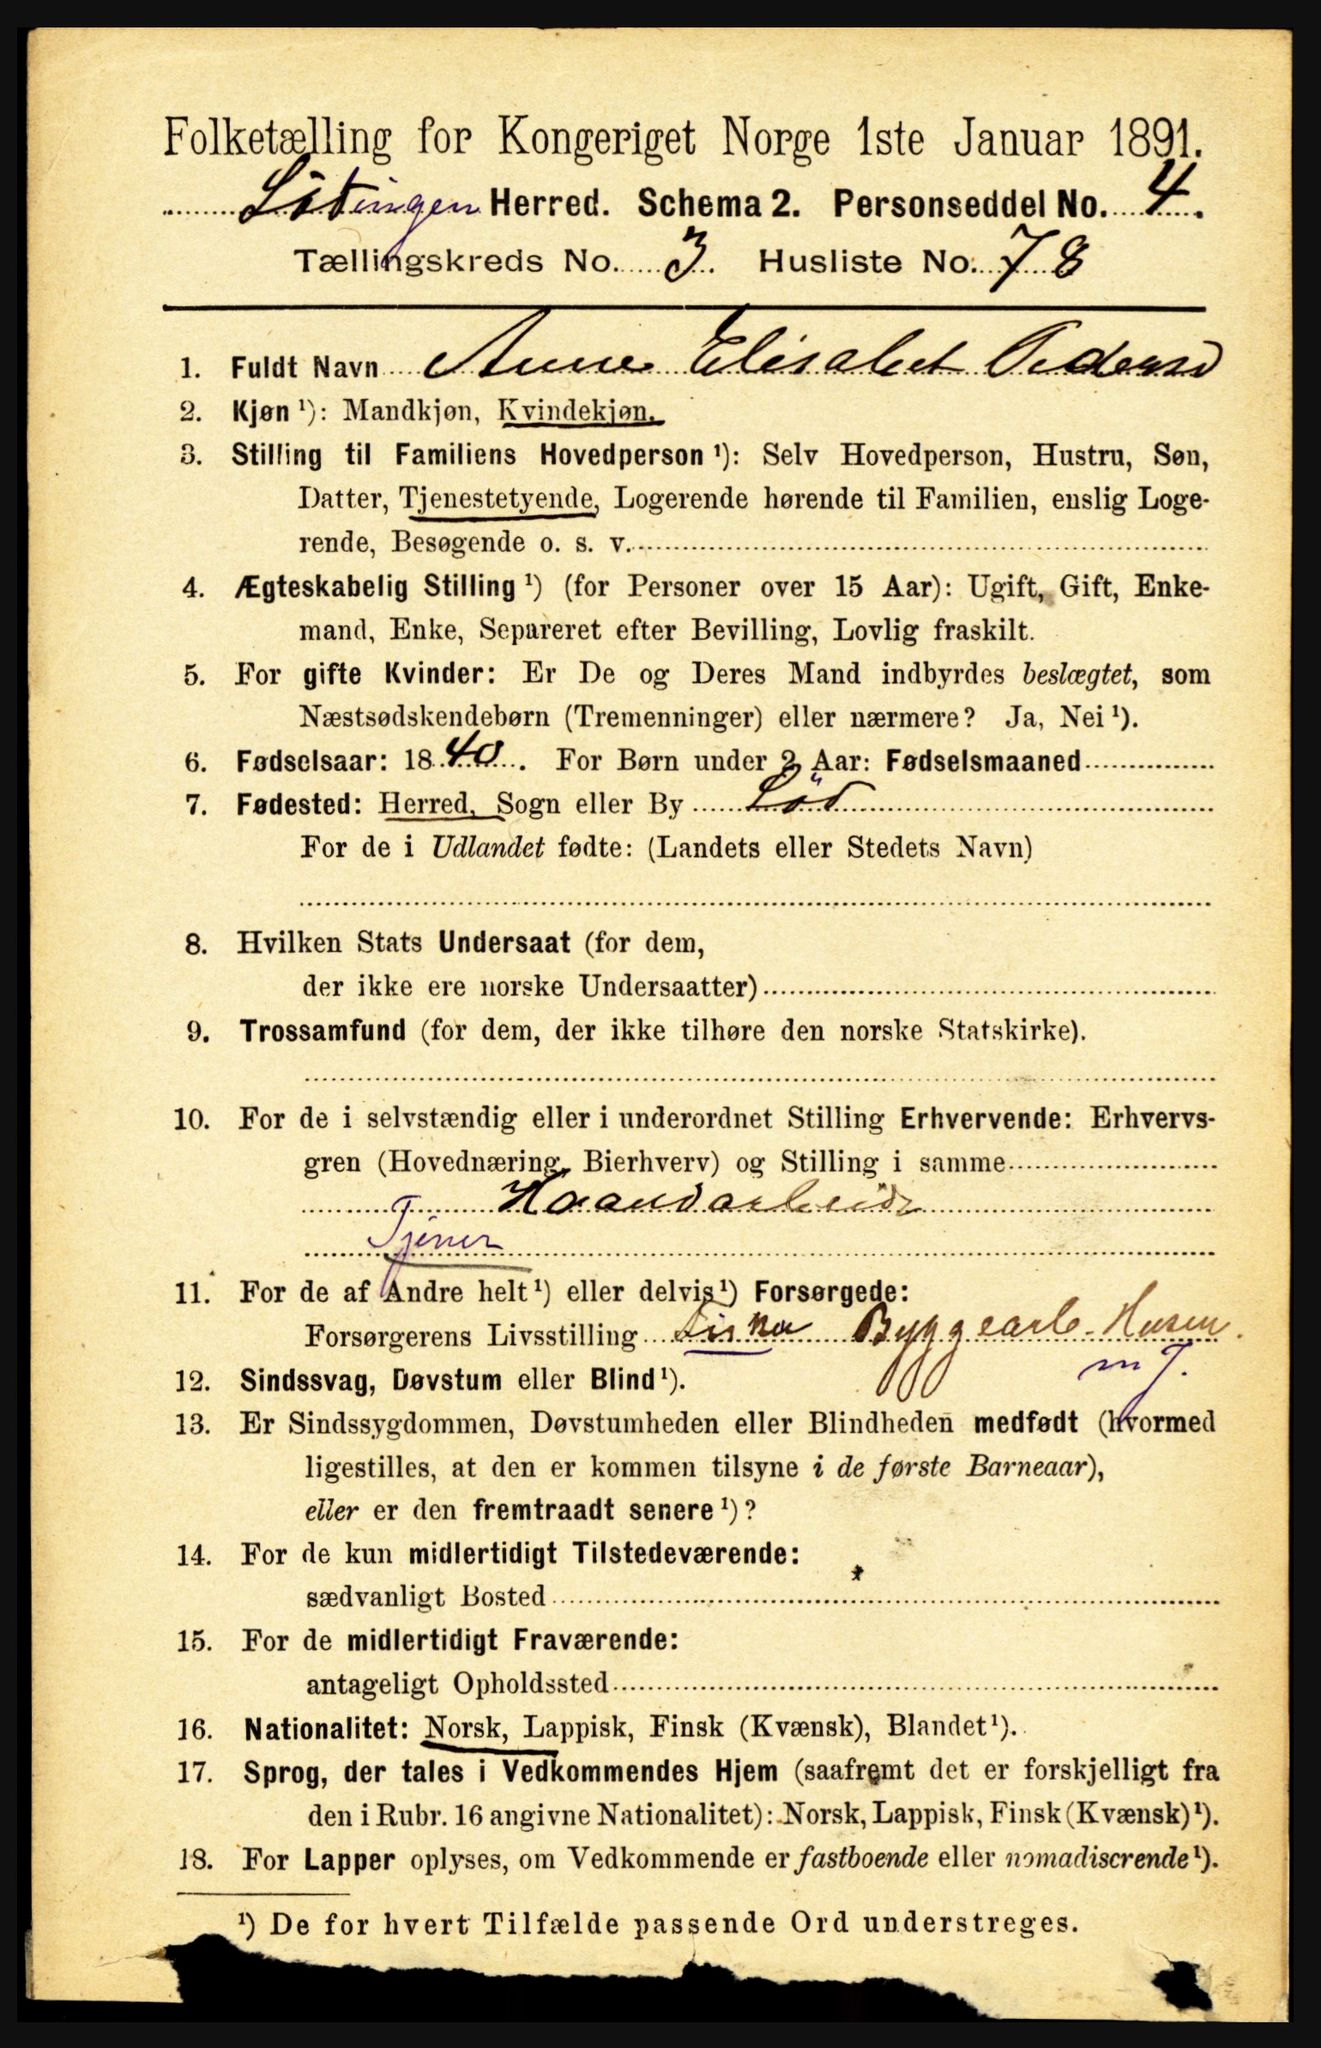 Folketælling for Kongeriget Norge 1ste Januar 1891.
Lødingen Herred. Schema 2. Personseddel No. 4.
Tællingskreds No. 3. Husliste No. 78
1. Fuldt Navn Anne Elisabet Pedersd
2. Kjøn ¹): Mandkjøn, Kvindekjøn.
3. Stilling til Familiens Hovedperson ¹): Selv Hovedperson, Hustru, Søn,
Datter, Tjenestetyende, Logerende hørende til Familien, enslig Loge-
rende, Besøgende o. s. v.
4. Ægteskabelig Stilling ¹) (for Personer over 15 Aar): Ugift, Gift, Enke-
mand, Enke, Separeret efter Bevilling, Lovlig fraskilt.
5. For gifte Kvinder: Er De og Deres Mand indbyrdes beslægtet, som
Næstsødskendebørn (Tremenninger) eller nærmere? Ja, Nei ¹).
6. Fødselsaar: 1840. For Børn under 2 Aar: Fødselsmaaned
7. Fødested: Herred, Sogn eller By Lød
For de i Udlandet fødte: (Landets eller Stedets Navn)
8. Hvilken Stats Undersaat (for dem,
der ikke ere norske Undersaatter)
9. Trossamfund (for dem, der ikke tilhøre den norske Statskirke).
10. For de i selvstændig eller i underordnet Stilling Erhvervende: Erhvervs-
gren (Hovednæring, Bierhverv) og Stilling i samme
Haandarbeide
Tjener
11. For de af Andre helt ¹) eller delvis ¹) Forsørgede:
Forsørgerens Livsstilling Byggearb.
m J.
12. Sindssvag, Døvstum eller Blind ¹).
13. Er Sindssygdommen, Døvstumheden eller Blindheden medfødt (hvormed
ligestilles, at den er kommen tilsyne i de første Barneaar),
eller er den fremtraadt senere ¹)?
14. For de kun midlertidigt Tilstedeværende:
sædvanligt Bosted
15. For de midlertidigt Fraværende:
antageligt Opholdssted
16. Nationalitet: Norsk, Lappisk, Finsk (Kvænsk), Blandet ¹).
17. Sprog, der tales i Vedkommendes Hjem (saafremt det er forskjelligt fra
den i Rubr. 16 angivne Nationalitet): Norsk, Lappisk, Finsk (Kvænsk) ¹).
18. For Lapper oplyses, om Vedkommende er fastboende eller nomadiserende ¹).
¹) De for hvert Tilfælde passende Ord understreges.